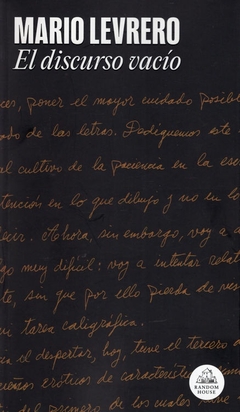 MARIO LEVRERO
El discurso vacío
ces, poner el mayor cuidado posibl
ado de las letras. Dediquemos este
al cultivo de la paciencia en la esc
tención en lo que dibujo y no en lo
decir. Ahora, sin embargo, voy a a
lgo muy difícil: voy a intentar relat
te, sin que por ello pierda de vis
mi tarea caligráfica.
n el despertar, hoy, tuve el tercero
sueños eróticos de característic
primero de los cuales
RANDOM
HOUSE